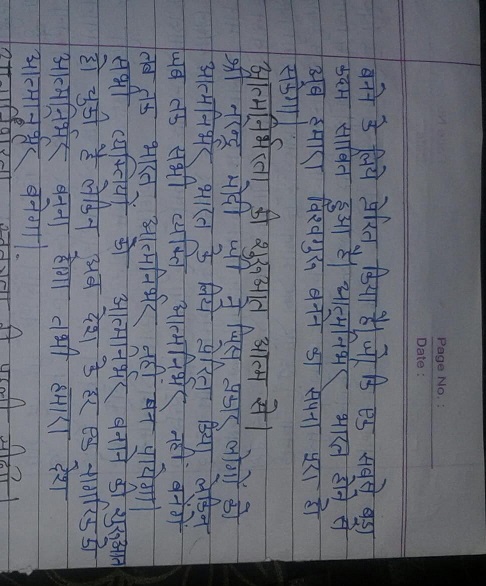 Page No. :
Date :
बनने के लिये प्रेरित किया है जो कि एक सबसे बड़ा
कदम साबित हुआ है। आत्मनिर्भर भारत होने से
अब हमारा विश्वगुरु बनने का सपना पूरा हो
सकेगा।
आत्मनिर्भरता की शुरुआत आत्म से।
श्री नरेन्द्र मोदी जी ने जिस प्रकार लोगों को
आत्मनिर्भर भारत के लिये प्रेरित किया लेकिन
जब तक सभी व्यक्ति आत्मनिर्भर नही बनेंगे
तब तक भारत आत्मनिर्भर नही बन पायेगा।
सभी व्यक्तियो को आत्मनिर्भर बनाने की शुरुआत
हो चुकी है लेकिन अब देश के हर एक नागरिक को
आत्मनिर्भर बनना होगा तभी हमारा देश
आत्मनिर्भर बनेगा।
आत्मनिर्भरता की पहली सीढ़ी।